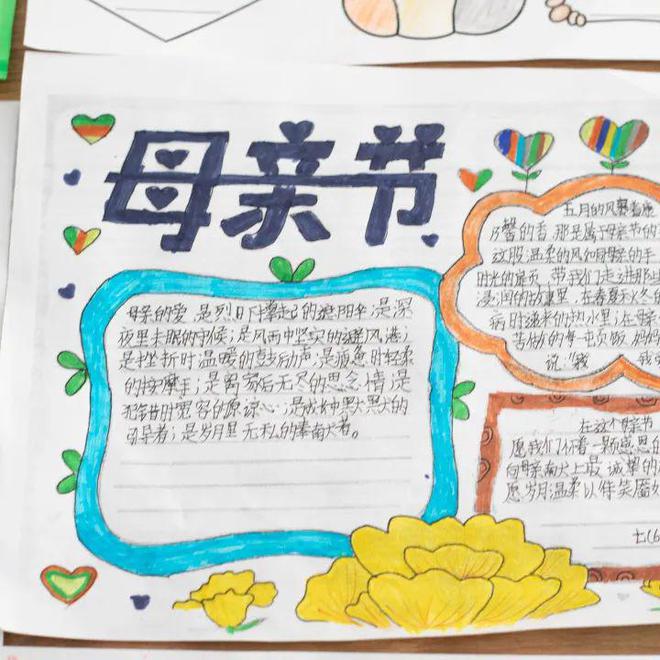 母亲节
母亲的爱,是烈日下撑起的遮阳伞;是深
夜里未眠的守候;是风雨中坚实的避风港;
是挫折时温暖的鼓励声;是疲惫时轻柔
的按摩手;是离家后无尽的思念情;是
犯错时宽容的原谅心;是成长中默默的
引导者;是岁月里无私的奉献者。
五月的风裹着康
乃馨的香,那是属于母亲节的
这股温柔的风似母亲的手
时光的扉页,带我们走进那些
浸润的故事里,在春夏秋冬的
病时递来的热水里;在母亲
做的每一顿饭,妈妈
说:"我
在这个母亲节
愿我们怀着一颗感恩的
向母亲献上最诚挚的
愿岁月温柔以待,笑靥如
七(6